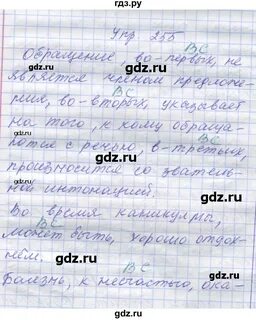 Упр 255
ВС
Обращение, во-первых, не
является членом предложе-
ВС
ния, во-вторых, указывает
на того, к кому обраща-
ВС
ются с речью, в-третьих,
произносится со зватель-
ной интонацией.
Во время каникулы,
ВС
может быть, хорошо отдох-
нём.
ВС
Болезнь, к несчастью, ока-
gdz.ru